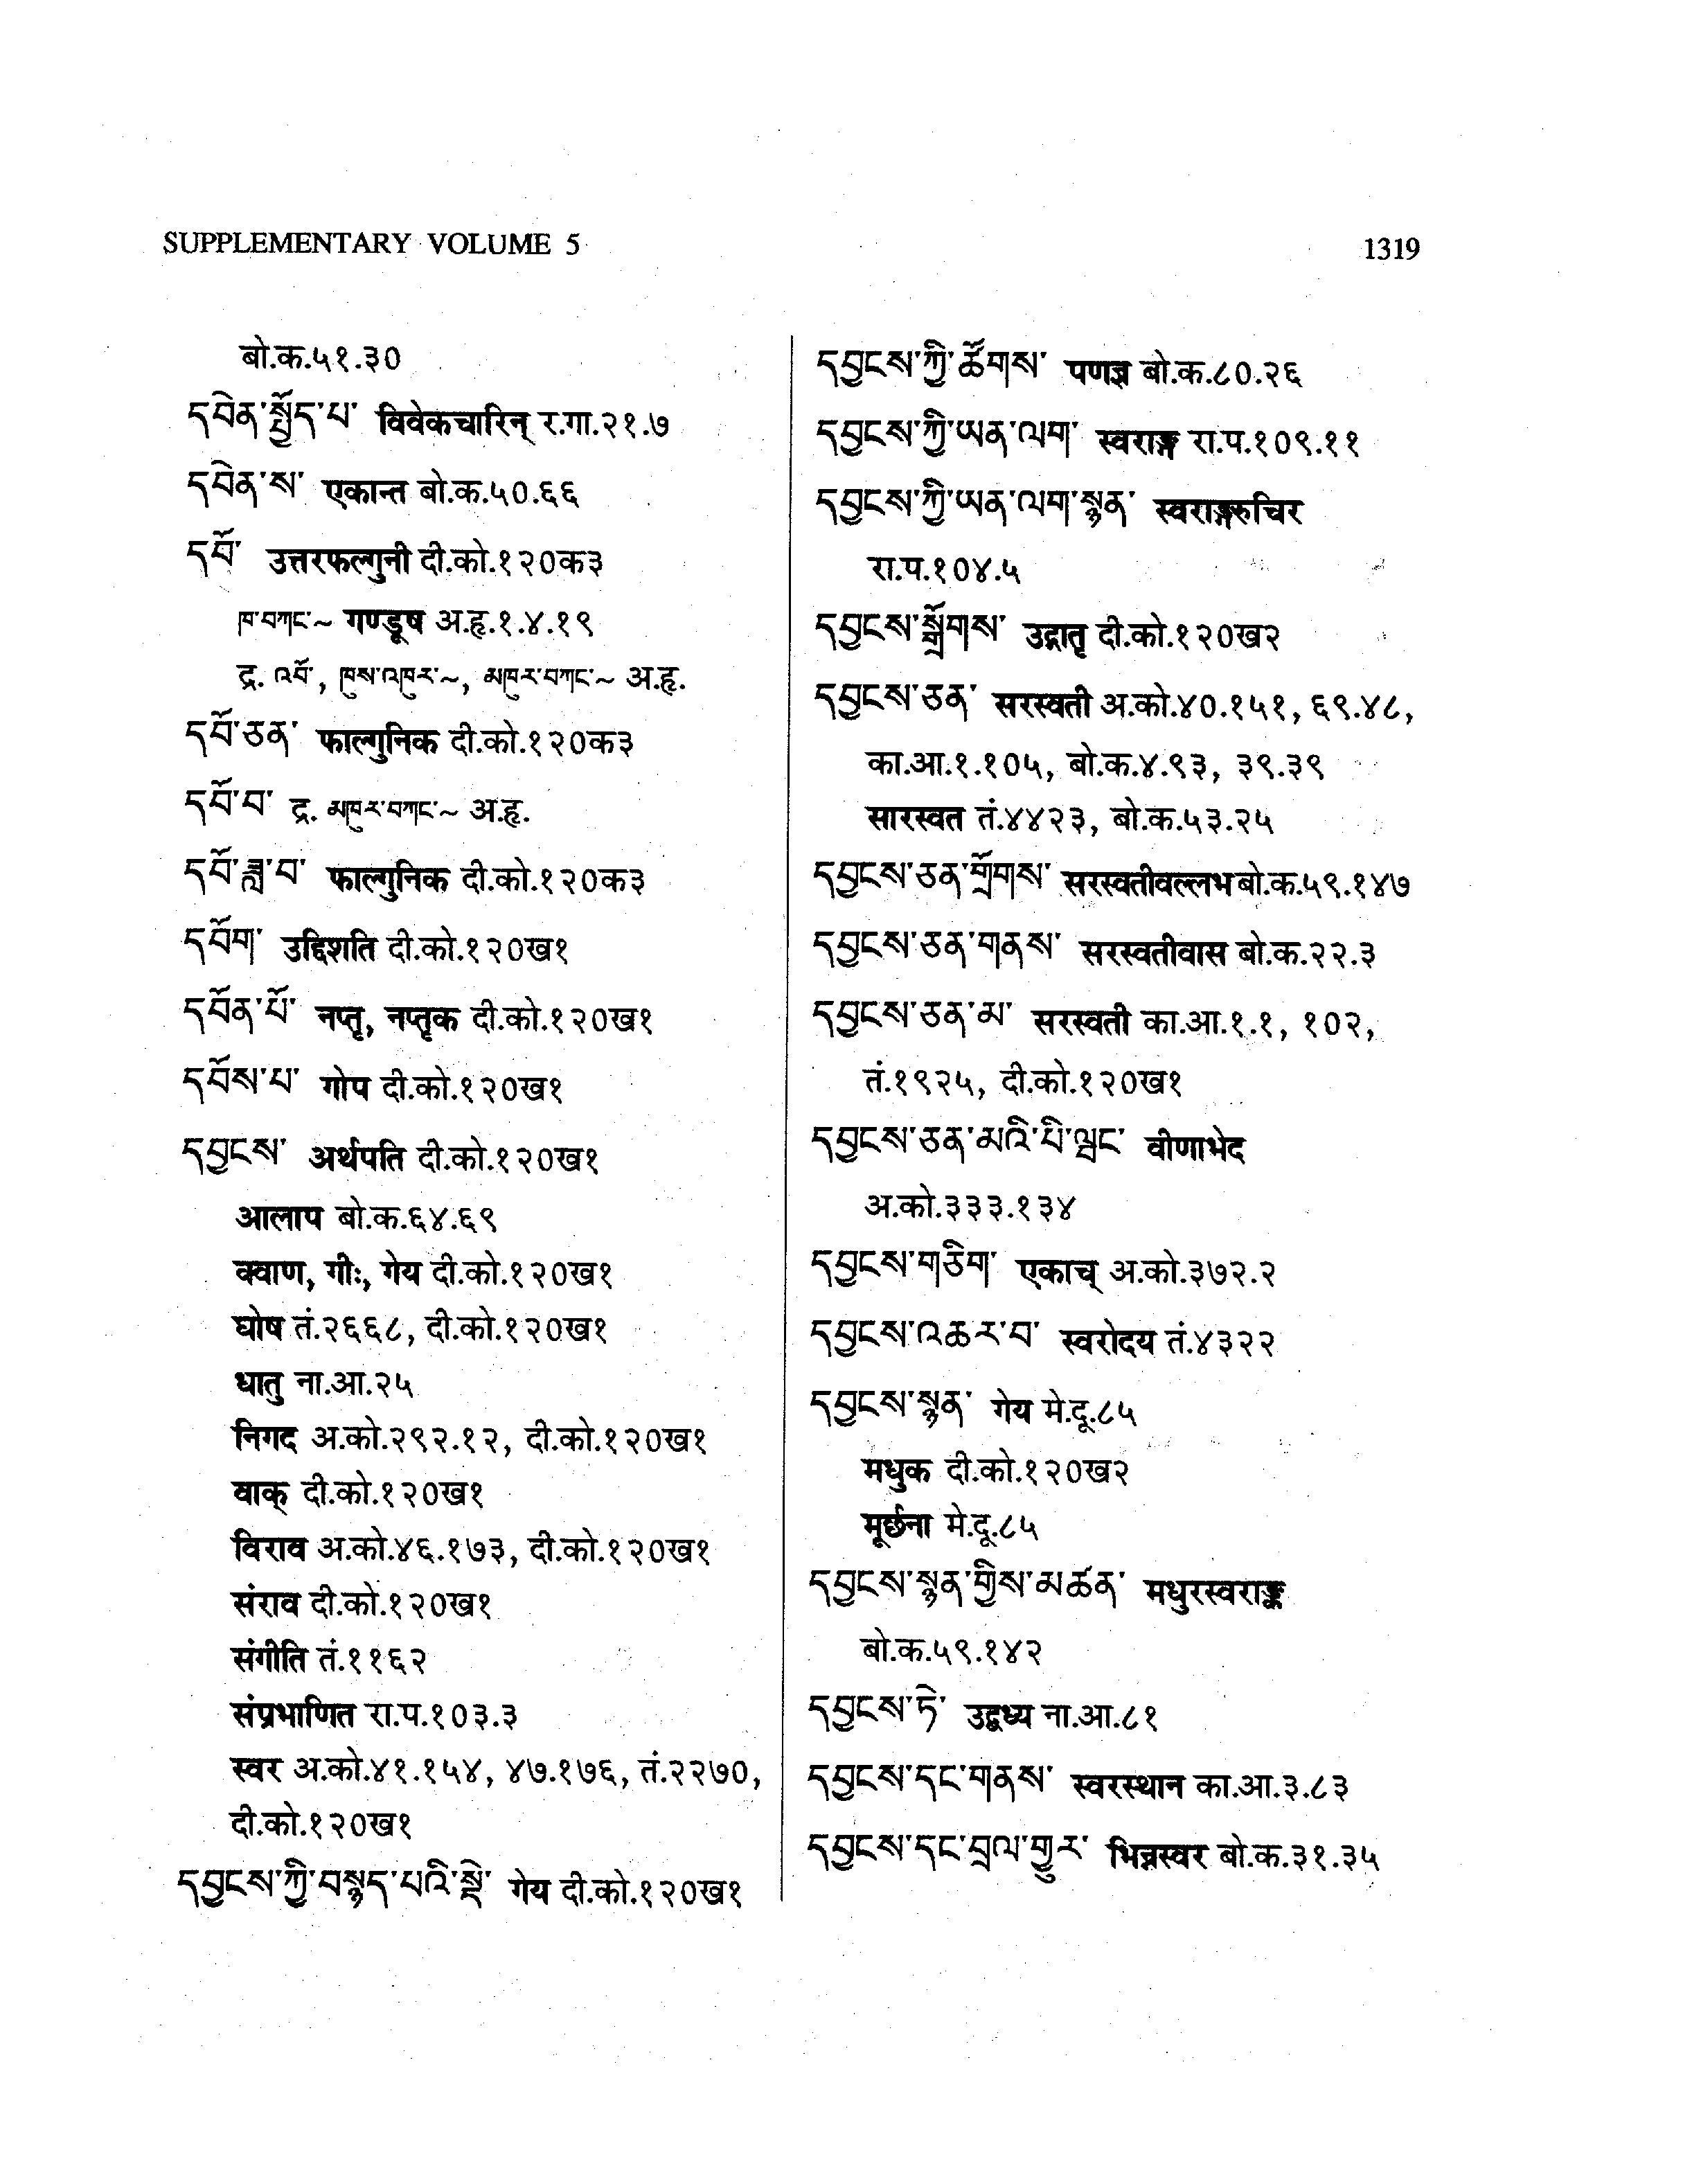 SUPPLEMENTARY VOLUME 5
1319
बो.क.५१.३०
དབེན་སྤྱོད་པ་ विवेकचारिन् र.गा.२१.७
དབེན་ས་ एकान्त बो.क.५०.६६
དབོ་ उत्तरफल्गुनी दी.को.१२०क३
ཁ་བཀང་~ गण्डूष अ.हृ.१.४.१९
द्र. འབོ་, ཁུས་འཁུར་~, མཁུར་བཀང་~ अ.हृ.
དབོ་ཅན་ फाल्गुनिक दी.को.१२०क३
དབོ་བ་ द्र. མཁུར་བཀང་~ अ.हृ.
དབོ་ཟླ་བ་ फाल्गुनिक दी.को.१२०क३
དབོག་ उद्दिशति दी.को.१२०ख१
དབོན་པོ་ नप्तृ, नप्तृक दी.को.१२०ख१
དབོས་པ་ गोप दी.को.१२०ख१
དབྱངས་ अर्थपति दी.को.१२०ख१
आलाप बो.क.६४.६९
क्वाण, गीः, गेय दी.को.१२०ख१
घोष तं.२६६८, दी.को.१२०ख१
धातु ना.आ.२५
निगद अ.को.२९२.१२, दी.को.१२०ख१
वाक् दी.को.१२०ख१
विराव अ.को.४६.१७३, दी.को.१२०ख१
संराव दी.को.१२०ख१
संगीति तं.११६२
संप्रभाणित रा.प.१०३.३
स्वर अ.को.४१.१५४, ४७.१७६, तं.२२७०,
दी.को.१२०ख१
དབྱངས་ཀྱི་བསྙད་པའི་སྡེ་ गेय दी.को.१२०ख१
དབྱངས་ཀྱི་ཚོགས་ पणज्ञ बो.क.८०.२६
དབྱངས་ཀྱི་ཡན་ལག་ स्वराङ्ग रा.प.१०९.११
དབྱངས་ཀྱི་ཡན་ལག་སྙན་ स्वराङ्गरुचिर
रा.प.१०४.५
དབྱངས་སྒྲོགས་ उद्गातृ दी.को.१२०ख२
དབྱངས་ཅན་ सरस्वती अ.को.४०.१५१, ६९.४८,
का.आ.१.१०५, बो.क.४.९३, ३९.३९
सारस्वत तं.४४२३, बो.क.५३.२५
དབྱངས་ཅན་གྲོགས་ सरस्वतीवल्लभ बो.क.५९.१४७
དབྱངས་ཅན་གནས་ सरस्वतीवास बो.क.२२.३
དབྱངས་ཅན་མ་ सरस्वती का.आ.१.१, १०२,
तं.१९२५, दी.को.१२०ख१
དབྱངས་ཅན་མའི་པི་ཝང་ वीणाभेद
अ.को.३३३.१३४
དབྱངས་གཅིག་ एकाच् अ.को.३७२.२
དབྱངས་འཆར་བ་ स्वरोदय तं.४३२२
དབྱངས་སྙན་ गेय मे.दू.८५
मधुक दी.को.१२०ख२
मूर्छना मे.दू.८५
དབྱངས་སྙན་གྱིས་མཚན་ मधुरस्वराङ्क
बो.क.५९.१४२
དབྱངས་ཏེ་ उद्बध्य ना.आ.८१
དབྱངས་དང་གནས་ स्वरस्थान का.आ.३.८३
དབྱངས་དང་བྲལ་གྱུར་ भिन्नस्वर बो.क.३१.३५